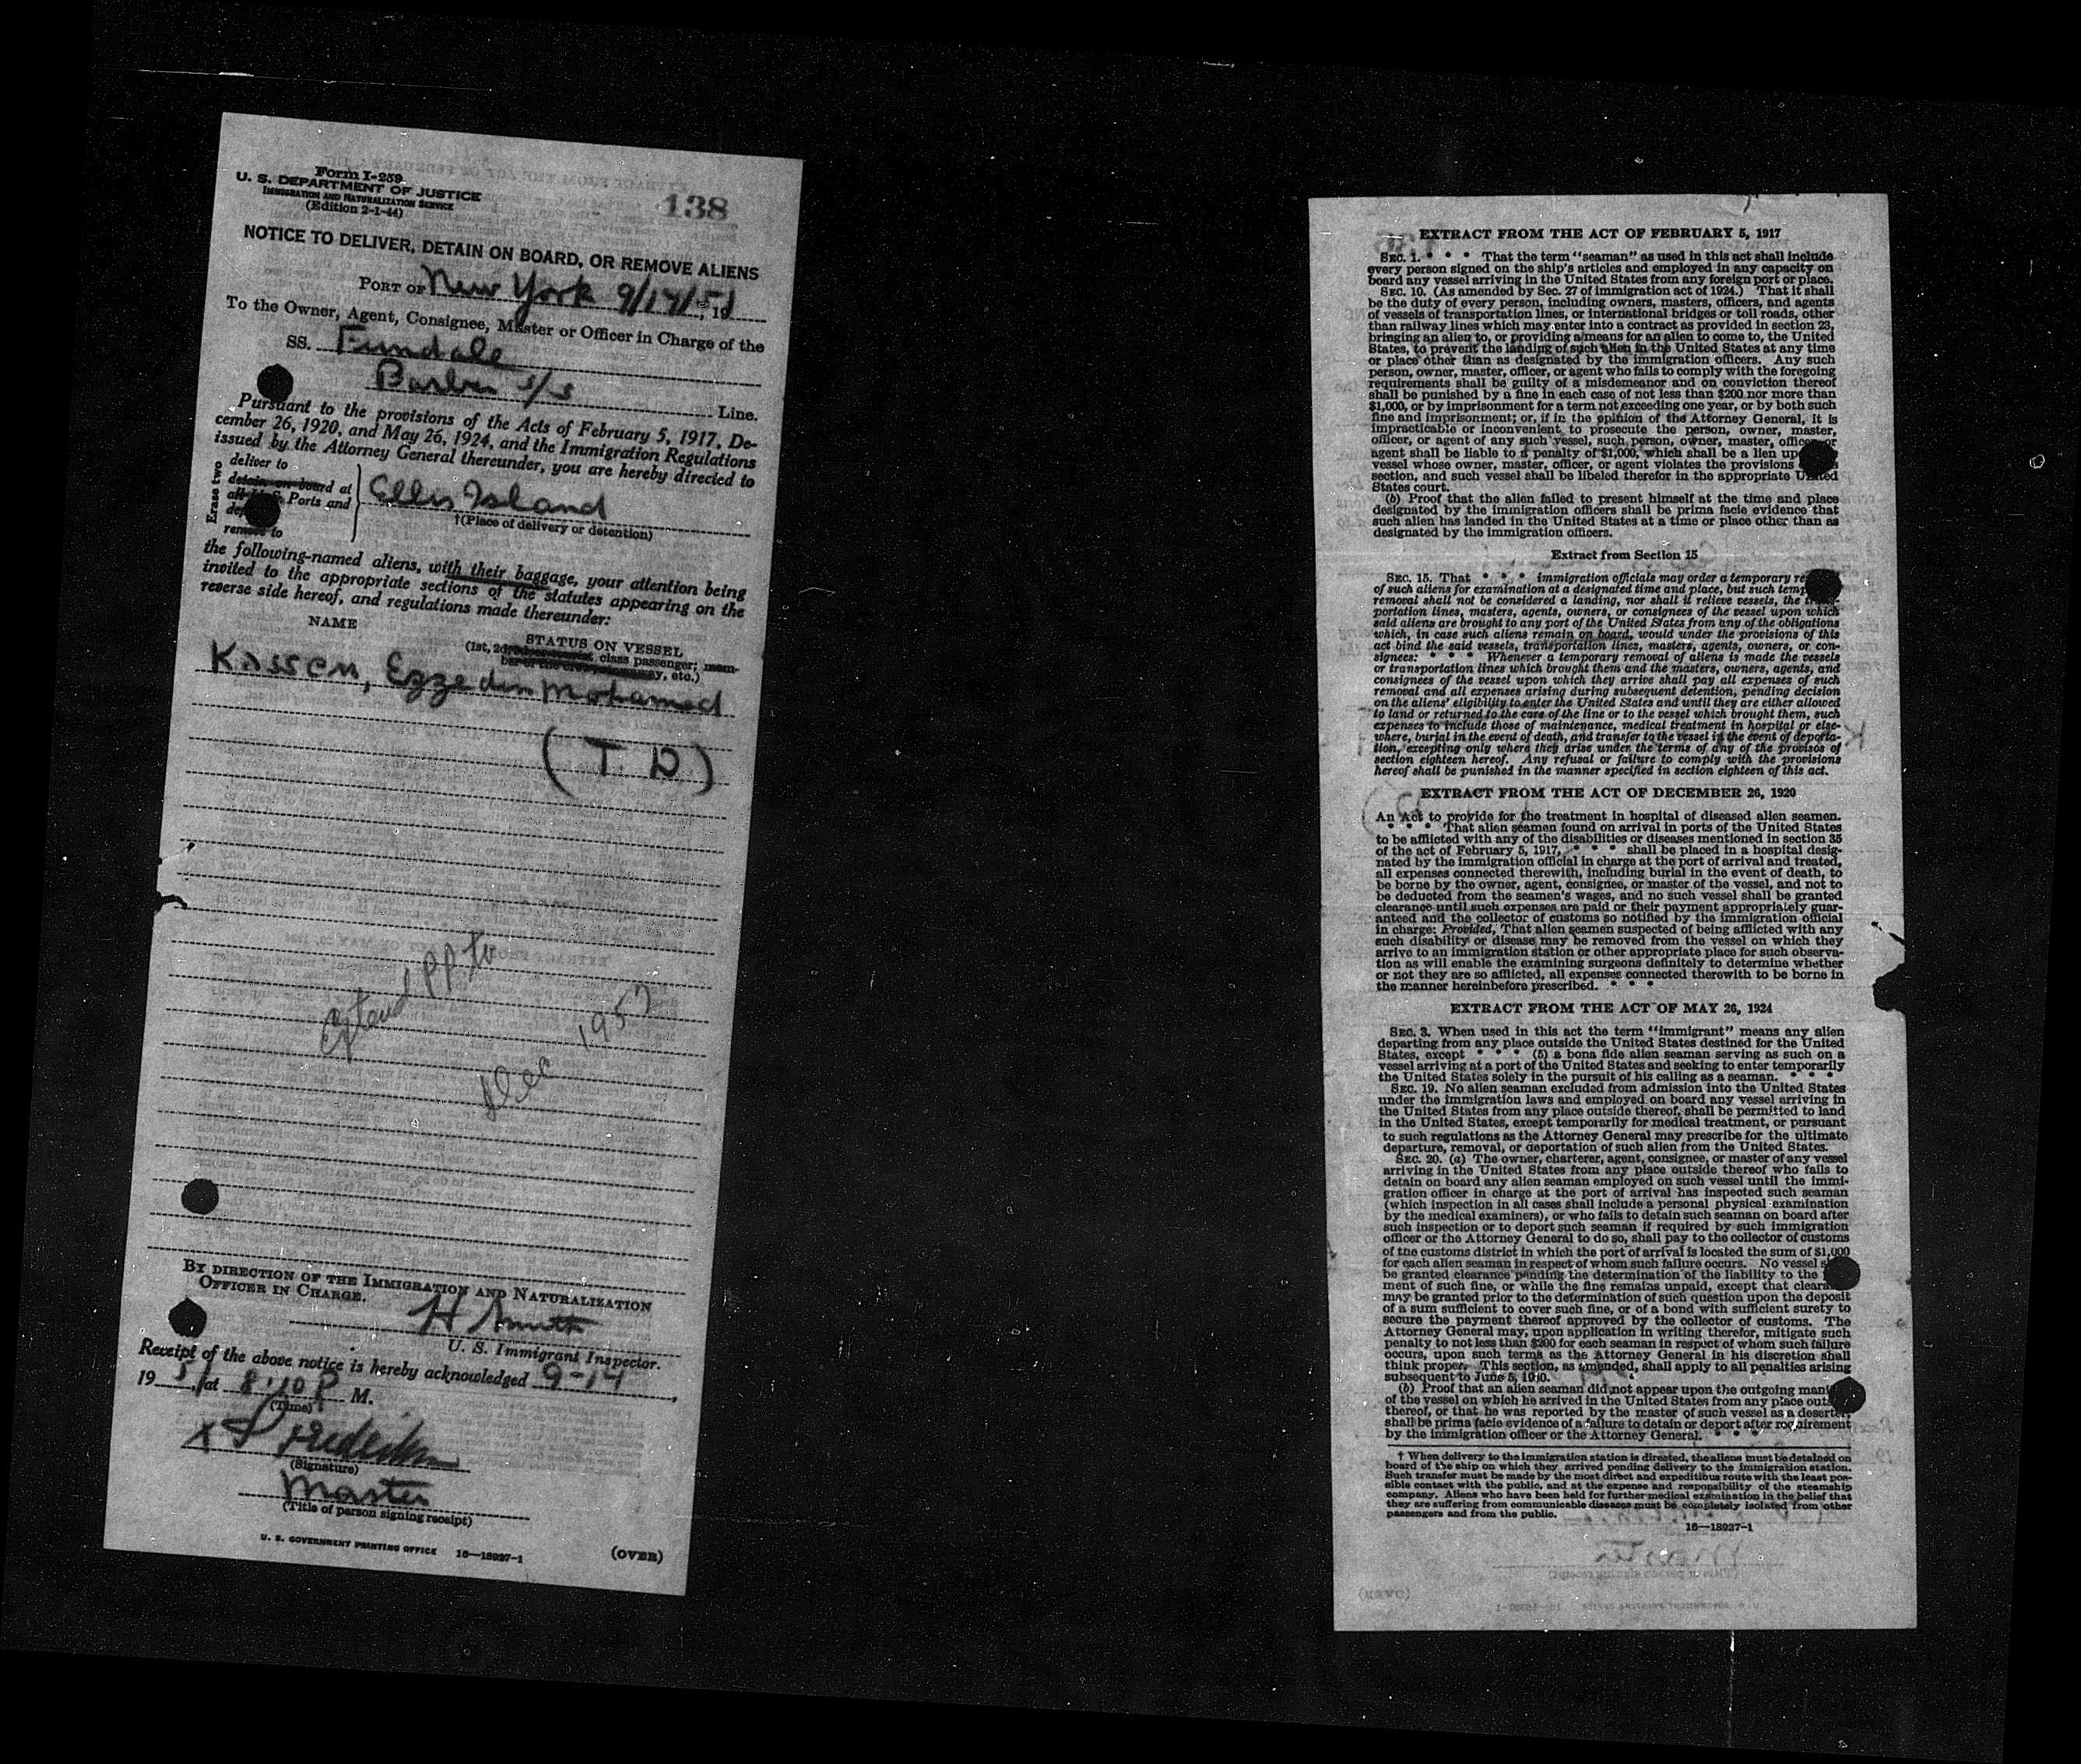 Form I-259
U. S. DEPARTMENT OF JUSTICE
IMMIGRATION AND NATURALIZATION SERVICE
(Edition 2-1-44)
138
NOTICE TO DELIVER, DETAIN ON BOARD, OR REMOVE ALIENS
PORT OF New York 9/14/51, 19
To the Owner, Agent, Consignee, Master or Officer in Charge of the
SS. Fundale
Barber S/S Line.
Pursuant to the provisions of the Acts of February 5, 1917, De-
cember 26, 1920, and May 26, 1924, and the Immigration Regulations
issued by the Attorney General thereunder, you are hereby directed to
Erase two
deliver to
detain on board at
all U. S. Ports and
remove to
Ellis Island
†(Place of delivery or detention)
the following-named aliens, with their baggage, your attention being
invited to the appropriate sections of the statutes appearing on the
reverse side hereof, and regulations made thereunder:
NAME
STATUS ON VESSEL
(1st, 2d, class passenger; mem-
ber of the etc.)
Kassem, Ezzedin Mohamed
(T. D)
Extend P.P. to
Dec 1952
BY DIRECTION OF THE IMMIGRATION AND NATURALIZATION
OFFICER IN CHARGE.
H Smith
U. S. Immigrant Inspector.
Receipt of the above notice is hereby acknowledged 9-14,
1951, at 8:10 P M.
(Time)
(Signature)
Master
(Title of person signing receipt)
U. S. GOVERNMENT PRINTING OFFICE 16—18927-1
(OVER)
EXTRACT FROM THE ACT OF FEBRUARY 5, 1917
SEC. 1. * * * That the term "seaman" as used in this act shall include
every person signed on the ship's articles and employed in any capacity on
board any vessel arriving in the United States from any foreign port or place.
SEC. 10. (As amended by Sec. 27 of immigration act of 1924.) That it shall
be the duty of every person, including owners, masters, officers, and agents
of vessels of transportation lines, or international bridges or toll roads, other
than railway lines which may enter into a contract as provided in section 23,
bringing an alien to, or providing a means for an alien to come to, the United
States, to prevent the landing of such alien in the United States at any time
or place other than as designated by the immigration officers. Any such
person, owner, master, officer, or agent who fails to comply with the foregoing
requirements shall be guilty of a misdemeanor and on conviction thereof
shall be punished by a fine in each case of not less than $200 nor more than
$1,000, or by imprisonment for a term not exceeding one year, or by both such
fine and imprisonment; or, if in the opinion of the Attorney General, it is
impracticable or inconvenient to prosecute the person, owner, master,
officer, or agent of any such vessel, such person, owner, master, officer or
agent shall be liable to a penalty of $1,000, which shall be a lien up
vessel whose owner, master, officer, or agent violates the provisions
section, and such vessel shall be libeled therefor in the appropriate United
States court.
(b) Proof that the alien failed to present himself at the time and place
designated by the immigration officers shall be prima facie evidence that
such alien has landed in the United States at a time or place other than as
designated by the immigration officers.
Extract from Section 15
SEC. 15. That * * * immigration officials may order a temporary re
of such aliens for examination at a designated time and place, but such temp
removal shall not be considered a landing, nor shall it relieve vessels, the trans-
portation lines, masters, agents, owners, or consignees of the vessel upon which
said aliens are brought to any port of the United States from any of the obligations
which, in case such aliens remain on board, would under the provisions of this
act bind the said vessels, transportation lines, masters, agents, owners, or con-
signees: * * * Whenever a temporary removal of aliens is made the vessels
or transportation lines which brought them and the masters, owners, agents, and
consignees of the vessel upon which they arrive shall pay all expenses of such
removal and all expenses arising during subsequent detention, pending decision
on the aliens' eligibility to enter the United States and until they are either allowed
to land or returned to the care of the line or to the vessel which brought them, such
expenses to include those of maintenance, medical treatment in hospital or else-
where, burial in the event of death, and transfer to the vessel in the event of deporta-
tion, excepting only where they arise under the terms of any of the provisos of
section eighteen hereof. Any refusal or failure to comply with the provisions
hereof shall be punished in the manner specified in section eighteen of this act.
EXTRACT FROM THE ACT OF DECEMBER 26, 1920
An Act to provide for the treatment in hospital of diseased alien seamen.
* * * That alien seamen found on arrival in ports of the United States
to be afflicted with any of the disabilities or diseases mentioned in section 35
of the act of February 5, 1917, * * * shall be placed in a hospital desig-
nated by the immigration official in charge at the port of arrival and treated,
all expenses connected therewith, including burial in the event of death, to
be borne by the owner, agent, consignee, or master of the vessel, and not to
be deducted from the seamen's wages, and no such vessel shall be granted
clearance until such expenses are paid or their payment appropriately guar-
anteed and the collector of customs so notified by the immigration official
in charge: Provided, That alien seamen suspected of being afflicted with any
such disability or disease may be removed from the vessel on which they
arrive to an immigration station or other appropriate place for such observa-
tion as will enable the examining surgeons definitely to determine whether
or not they are so afflicted, all expenses connected therewith to be borne in
the manner hereinbefore prescribed. * * *
EXTRACT FROM THE ACT OF MAY 26, 1924
SEC. 3. When used in this act the term "immigrant" means any alien
departing from any place outside the United States destined for the United
States, except * * * (5) a bona fide alien seaman serving as such on a
vessel arriving at a port of the United States and seeking to enter temporarily
the United States solely in the pursuit of his calling as a seaman. * * *
SEC. 19. No alien seaman excluded from admission into the United States
under the immigration laws and employed on board any vessel arriving in
the United States from any place outside thereof, shall be permitted to land
in the United States, except temporarily for medical treatment, or pursuant
to such regulations as the Attorney General may prescribe for the ultimate
departure, removal, or deportation of such alien from the United States.
SEC. 20. (a) The owner, charterer, agent, consignee, or master of any vessel
arriving in the United States from any place outside thereof who fails to
detain on board any alien seaman employed on such vessel until the immi-
gration officer in charge at the port of arrival has inspected such seaman
(which inspection in all cases shall include a personal physical examination
by the medical examiners), or who fails to detain such seaman on board after
such inspection or to deport such seaman if required by such immigration
officer or the Attorney General to do so, shall pay to the collector of customs
of the customs district in which the port of arrival is located the sum of $1,000
for each alien seaman in respect of whom such failure occurs. No vessel s
be granted clearance pending the determination of the liability to the
ment of such fine, or while the fine remains unpaid, except that clearan
may be granted prior to the determination of such question upon the deposit
of a sum sufficient to cover such fine, or of a bond with sufficient surety to
secure the payment thereof approved by the collector of customs. The
Attorney General may, upon application in writing therefor, mitigate such
penalty to not less than $200 for each seaman in respect of whom such failure
occurs, upon such terms as the Attorney General in his discretion shall
think proper. This section, as amended, shall apply to all penalties arising
subsequent to June 5, 1940.
(b) Proof that an alien seaman did not appear upon the outgoing mani
of the vessel on which he arrived in the United States from any place outs
thereof, or that he was reported by the master of such vessel as a deserter,
shall be prima facie evidence of a failure to detain or deport after requirement
by the immigration officer or the Attorney General. * * *
† When delivery to the immigration station is directed, the aliens must be detained on
board of the ship on which they arrived pending delivery to the immigration station.
Such transfer must be made by the most direct and expeditious route with the least pos-
sible contact with the public, and at the expense and responsibility of the steamship
company. Aliens who have been held for further medical examination in the belief that
they are suffering from communicable diseases must be completely isolated from other
passengers and from the public.
16—18927-1